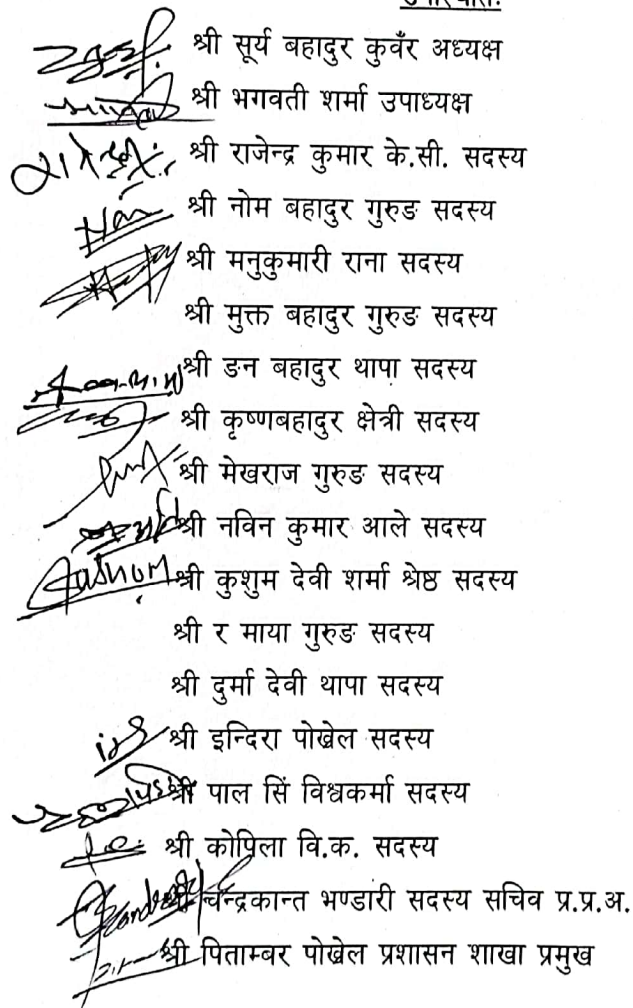 उपस्थितिः
श्री सूर्य बहादुर कुवँर अध्यक्ष
श्री भगवती शर्मा उपाध्यक्ष
श्री राजेन्द्र कुमार के.सी. सदस्य
श्री नोम बहादुर गुरुङ सदस्य
श्री मनुकुमारी राना सदस्य
श्री मुक्त बहादुर गुरुङ सदस्य
श्री ङन बहादुर थापा सदस्य
श्री कृष्णबहादुर क्षेत्री सदस्य
श्री मेखराज गुरुङ सदस्य
श्री नविन कुमार आले सदस्य
Kushum श्री कुशुम देवी शर्मा श्रेष्ठ सदस्य
श्री र माया गुरुङ सदस्य
श्री दुर्मा देवी थापा सदस्य
श्री इन्दिरा पोखेल सदस्य
श्री पाल सिं विश्वकर्मा सदस्य
श्री कोपिला वि.क. सदस्य
श्री चन्द्रकान्त भण्डारी सदस्य सचिव प्र.प्र.अ.
श्री पिताम्बर पोखेल प्रशासन शाखा प्रमुख